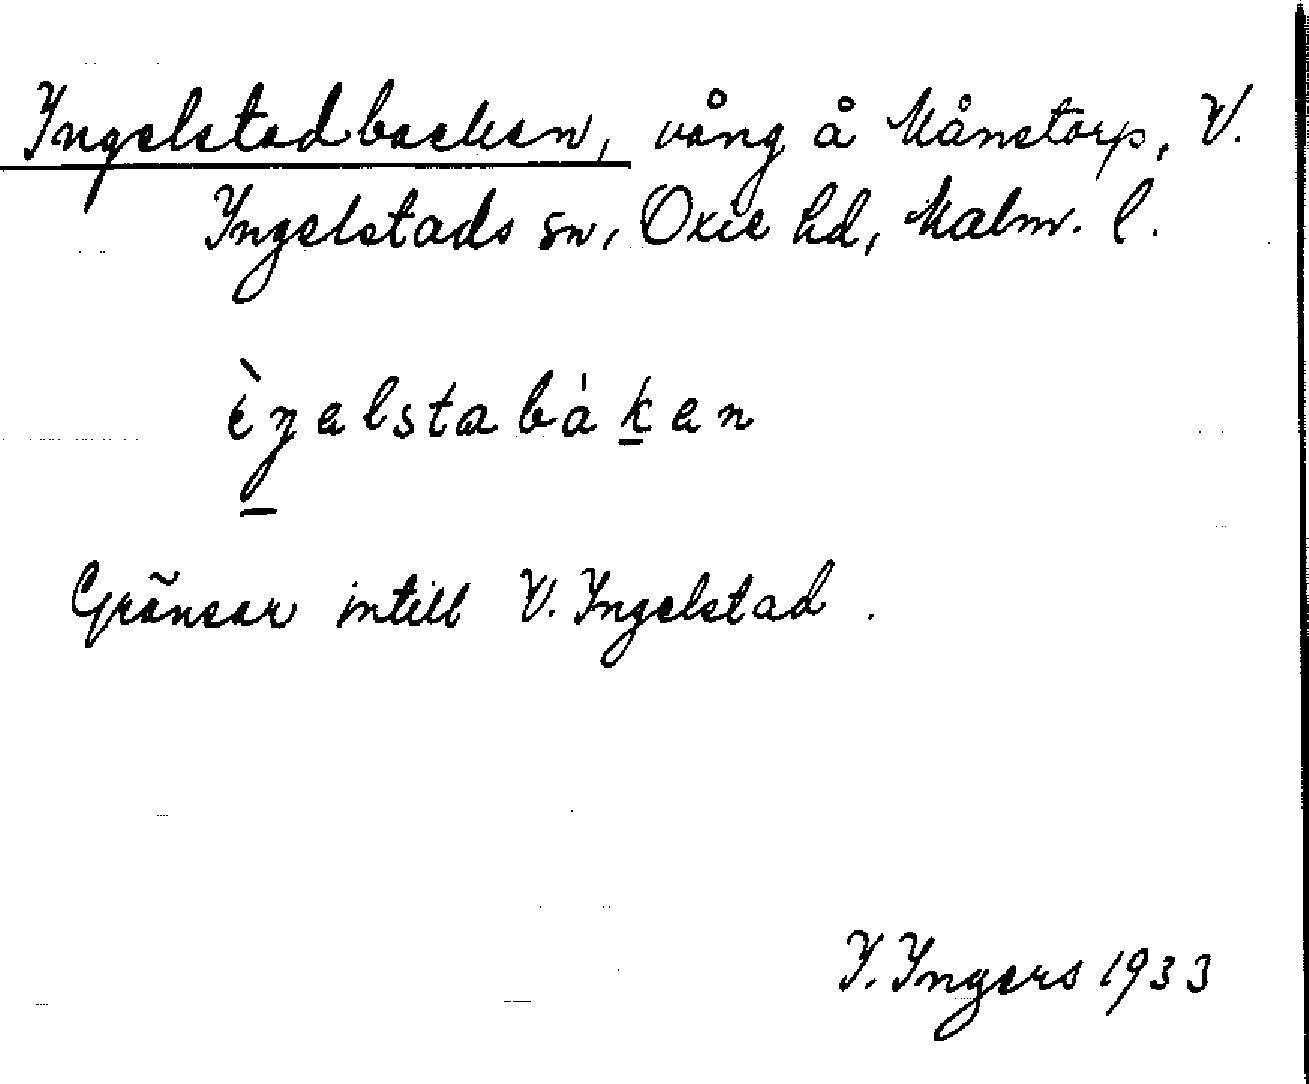 Ingelstadbacken, vång å Månstorp, V.
Ingelstads sn, Oxie hd, Malm. l.
ìŋelstabáken
Gränsar intill V. Ingelstad.
I. Ingers 1933